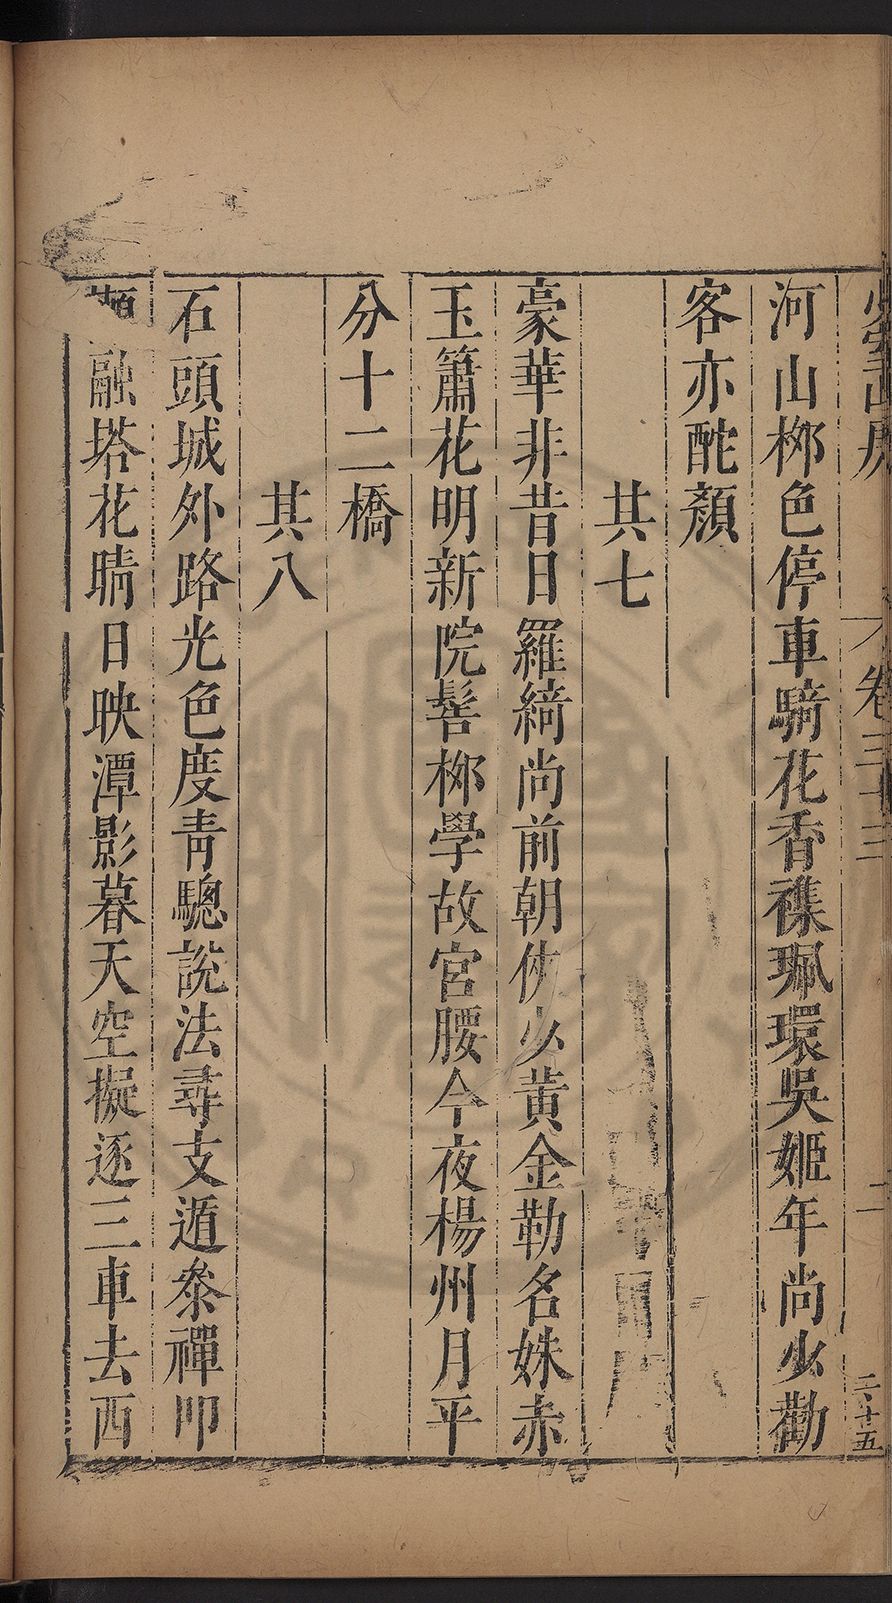 卷三十三
二
二十五
河山桺色停車騎花香襍珮環吳姬年尚少勸
客亦酡顏
其七
豪華非昔日羅綺尚前朝俠少黃金勒名姝赤
玉簫花明新院髻桺學故宮腰今夜楊州月平
分十二橋
其八
石頭城外路光色度青驄說法尋支遁叅禪叩
融塔花晴日映潭影暮天空擬逐三車去西